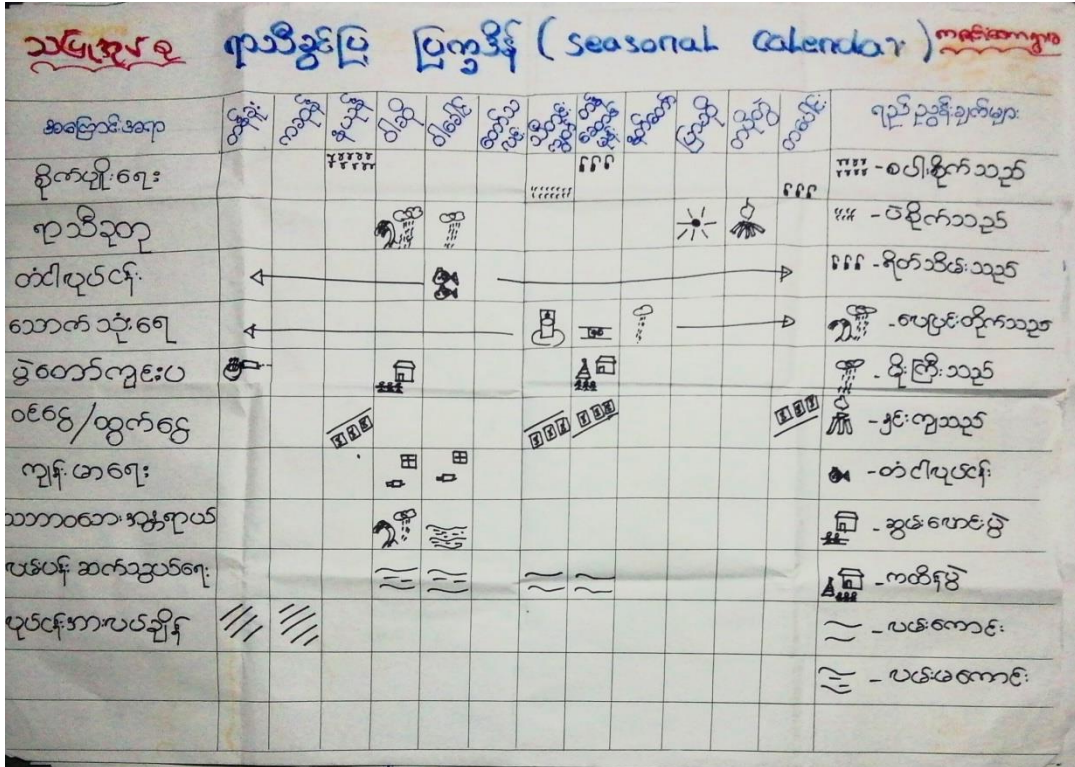 သပြုအုပ်စု ရာသီခွင်ပြ ပြက္ခဒိန် ( Seasonal Calendar )
အကြောင်းအရာ တန်ခူး ကဆုန် နယုန် ဝါဆို ဝါခေါင် တော်သလင်း သီတင်းကျွတ် တန်ဆောင်မုန်း နတ်တော် ပြာသို တပို့တွဲ တပေါင်း ရည်ညွှန်းချက်များ
စိုက်ပျိုးရေး - စပါးစိုက်သည်
ရာသီဥတု - ပဲစိုက်သည်
တံငါလုပ်ငန်း - ရိတ်သိမ်းသည်
သောက်သုံးရေ - လေပြင်းတိုက်သည်
ပွဲတော်ကျင်းပ - မိုးကြီးသည်
ဝင်ငွေ/ထွက်ငွေ - နှင်းကျသည်
ကျန်းမာရေး - တံငါလုပ်ငန်း
သဘာဝဘေးအန္တရာယ် - ဆွမ်းလောင်းပွဲ
လမ်းပန်းဆက်သွယ်ရေး - ကထိန်ပွဲ
လုပ်ငန်းအားလပ်ချိန် - လမ်းကောင်း
- လမ်းမကောင်း